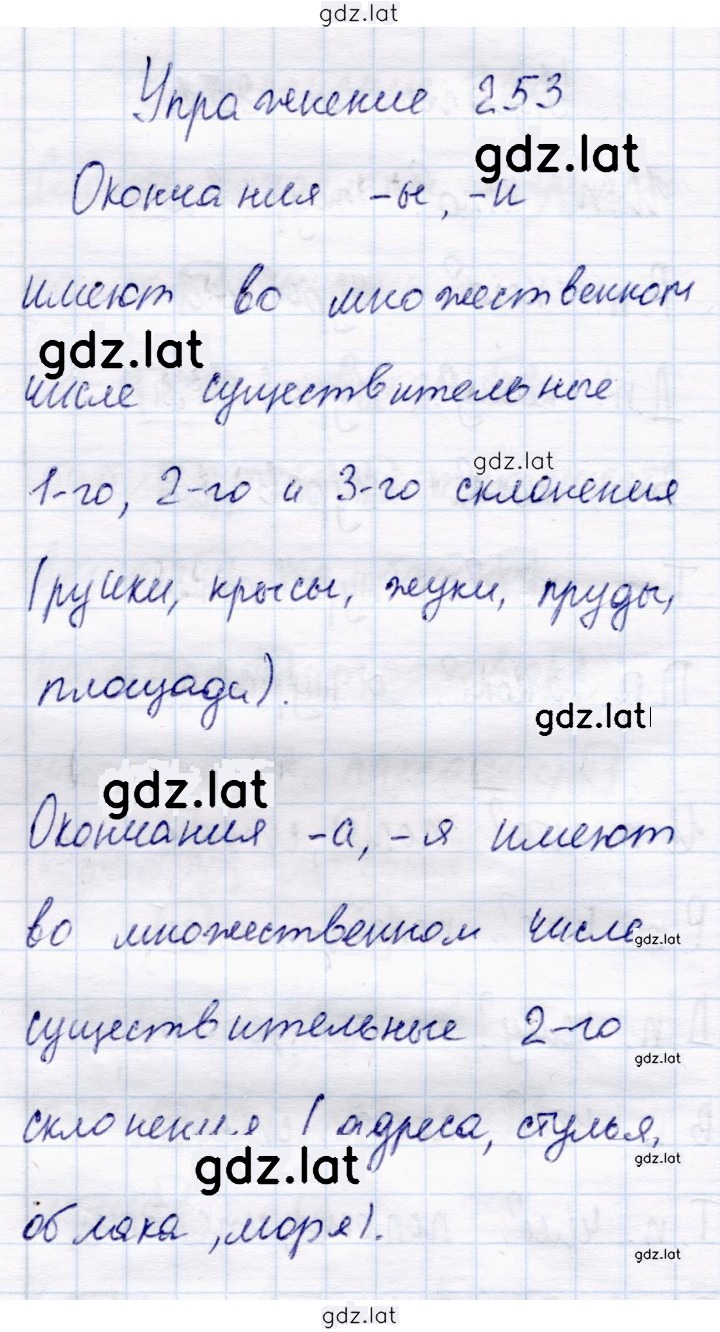 gdz.lat
Упражнение 253
gdz.lat
Окончания -ы, -и
имеют во множественном
gdz.lat
числе существительные
gdz.lat
1-го, 2-го и 3-го склонения
(ручки, крысы, жуки, пруды,
площади).
gdz.lat
gdz.lat
Окончания -а, -я имеют
во множественном числе
gdz.lat
существительные 2-го
gdz.lat
склонения (адреса, стулья,
gdz.lat
gdz.lat
облака, моря).
gdz.lat
gdz.lat